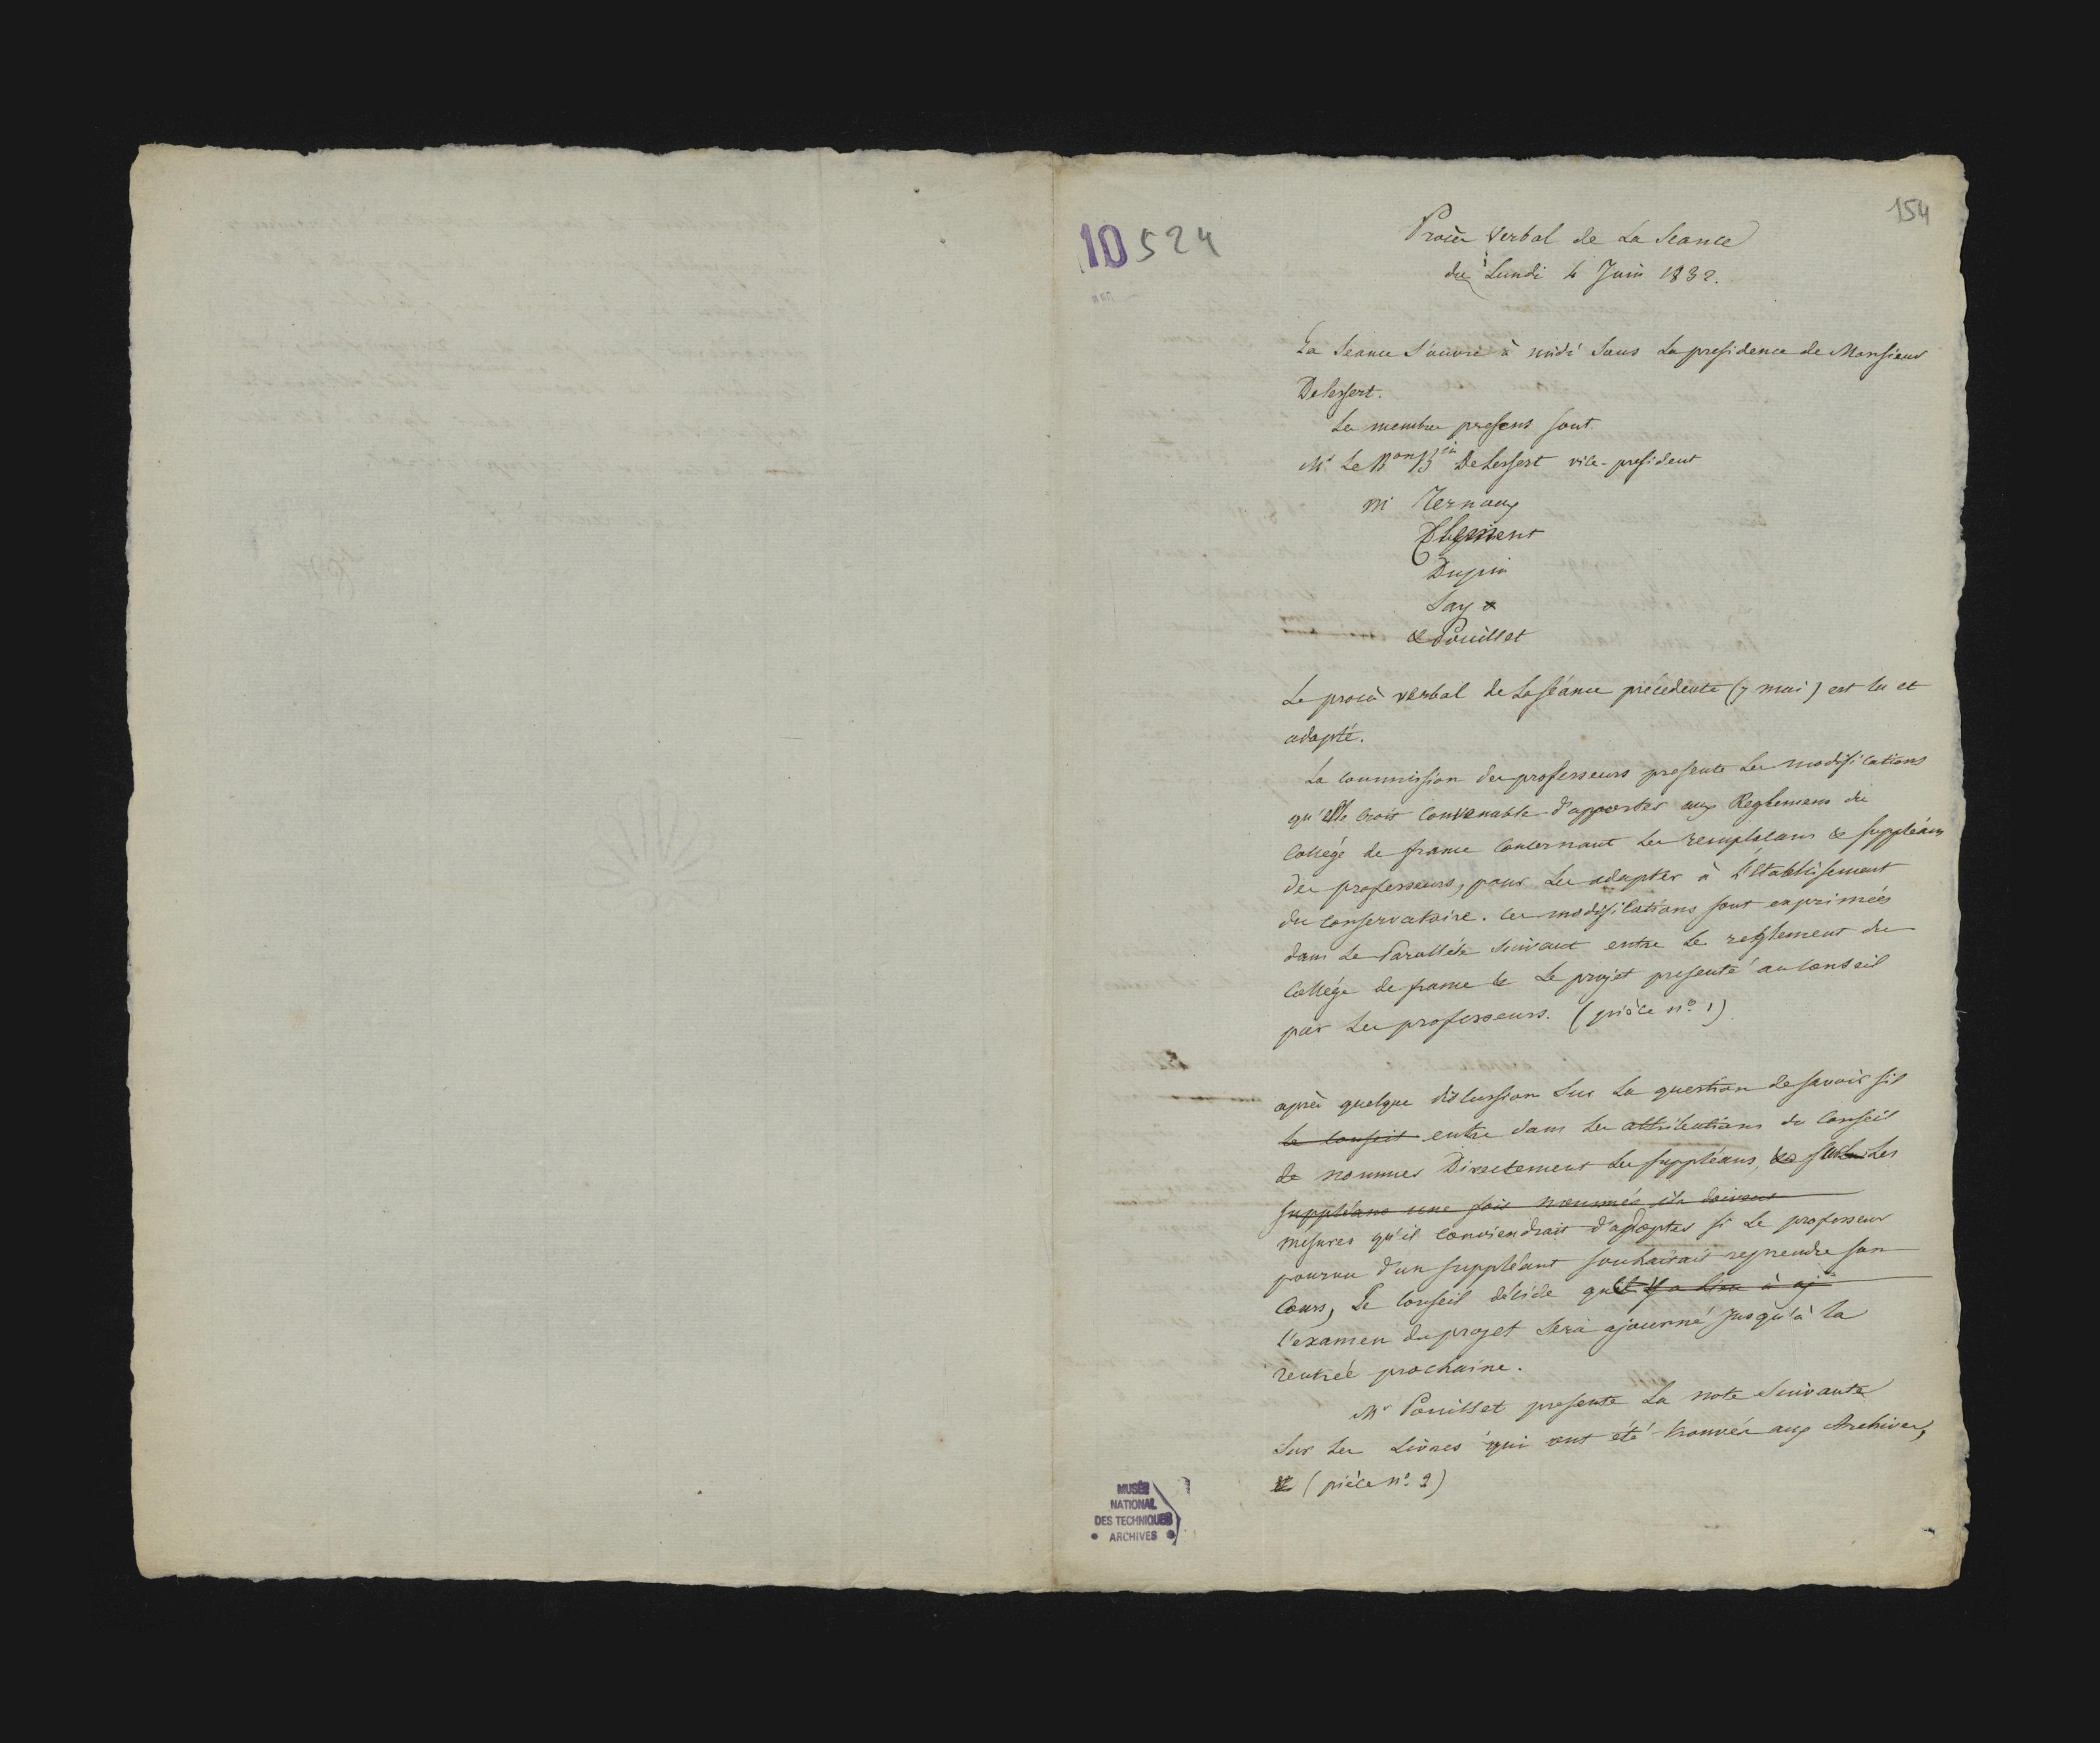 154
10 524
Procès Verbal de La Seance
du Lundi 4 Juin 1832.
La Seance s'ouvre à midi sous La presidence de Monsieur
Delessert.
Les membres presens sont
Mr Le Bon Bin Delessert vice-president
Mr Ternaux
Clément
Dupin
Say &
& Pouillet
Le procès verbal de La séance précedente (7 mai) est lu et
adopté.
La commission des professeurs presente Les modifications
qu'elle croit convenable d'apporter aux Reglemens du
Collége de france concernant Les remplacans & suppléans
des professeurs, pour Les adapter à L'établissement
du conservatoire. Ces modifications sont exprimées
dans Le Parallèle suivant entre Le reglement du
Collége de france & Le projet presenté au conseil
par Les professeurs. (pièce n° 1)
après quelque discussion sur La question de savoir s'il
le conseil entre dans Les attributions du Conseil
de nommer Directement Les suppléans, & sur Les
suppléans une fois nommés ils doivent
mesures qu'il conviendrait d'adopter si Le professeur
pourvu d'un suppléant souhaitait reprendre son
Cours, Le Conseil décide qu'il y a lieu à aj
l'examen du projet sera ajourné jusqu'à la
rentrée prochaine.
Mr Pouillet presente La note suivante
sur Les Livres qui ont été trouvés aux Archives,
(pièce n° 2)
MUSÉE
NATIONAL
DES TECHNIQUES
ARCHIVES